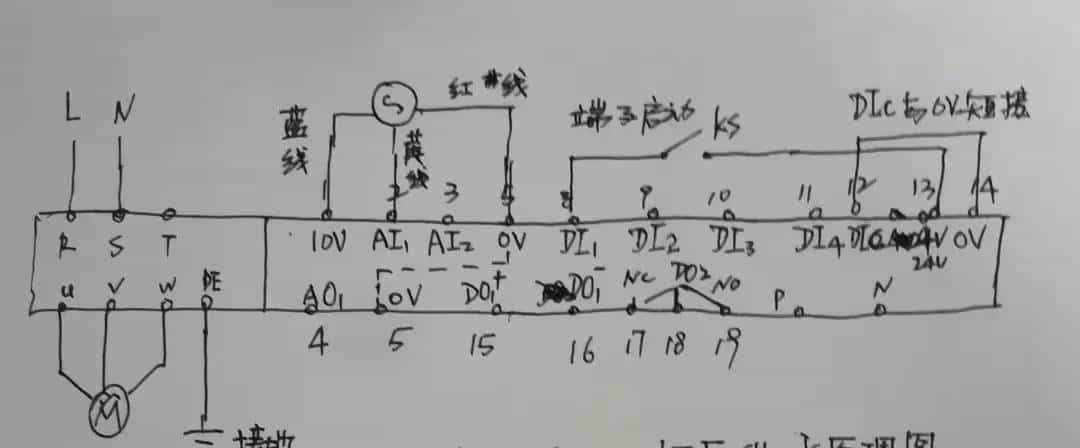 L N
蓝线
S
红 线
黄线
端子启动
KS
DIC与0V短接
1 2 3 8 9 10 11 12 13 14
R S T
10V AI1 AI2 0V DI1 DI2 DI3 DI4 DIC 24V 0V
U V W PE
AO1 0V DO1+ DO1- NC DO2 NO P N
4 5 15 16 17 18 19
M
原理图